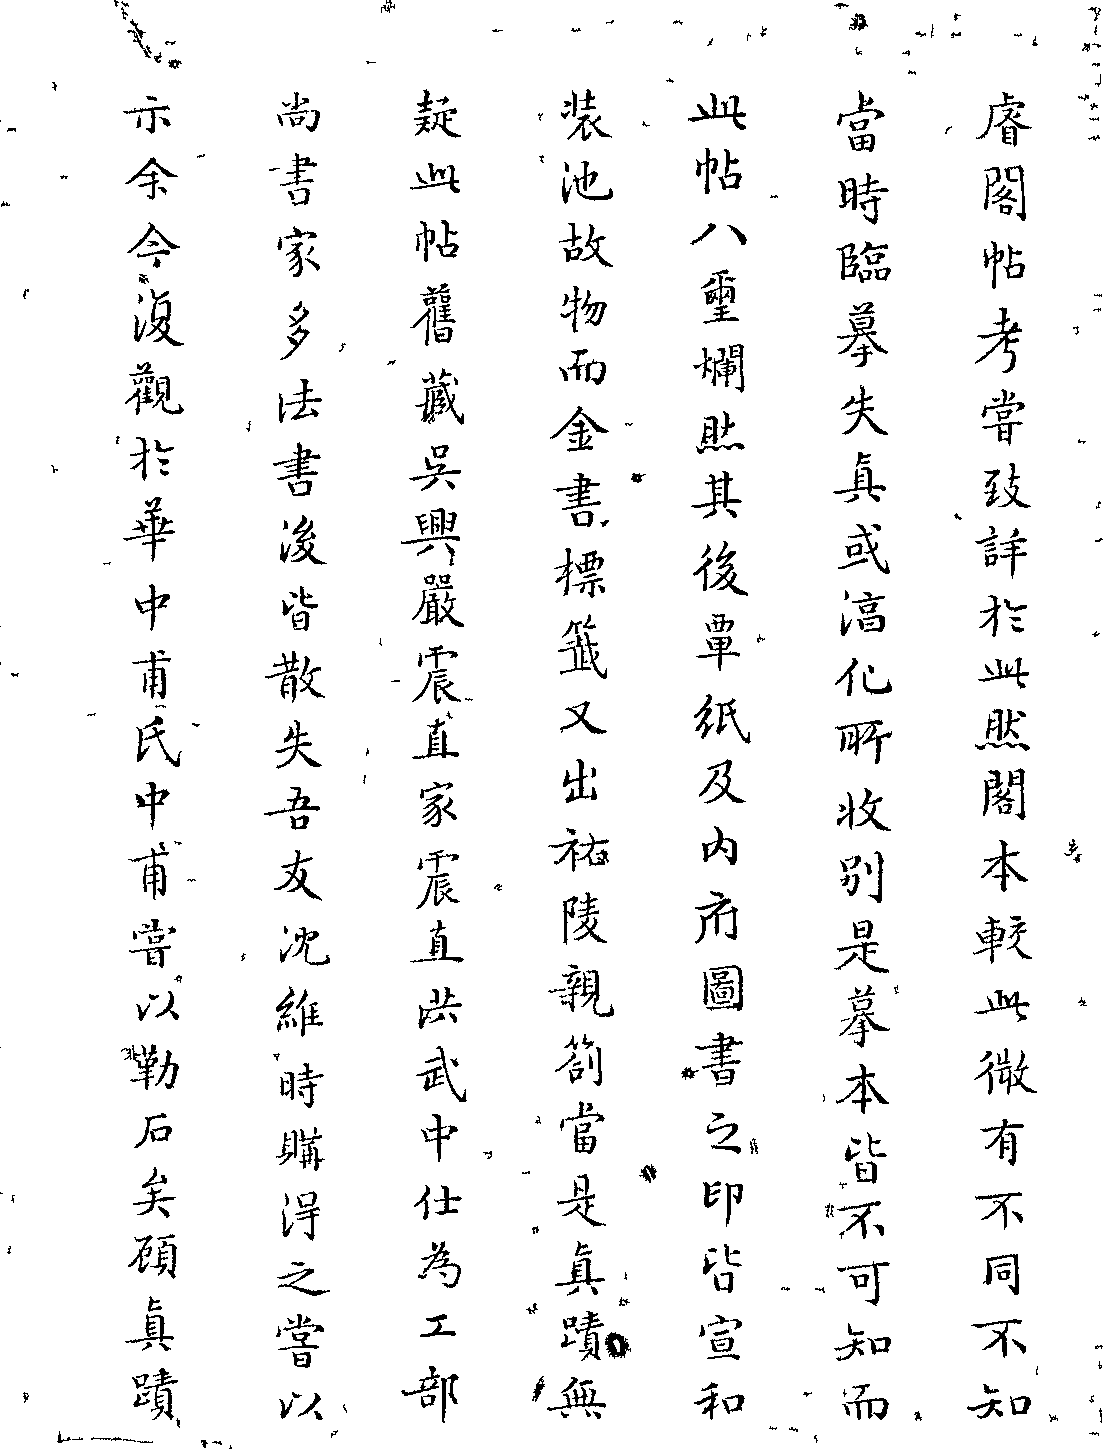 睿閣帖考嘗致詳於此然閣本較此微有不同不知
當時臨摹失真或淳化所收別是摹本皆不可知而
此帖八璽爛然其後覃紙及內府圖書之印皆宣和
裝池故物而金書標籤又出祐陵親劄當是真蹟無
疑此帖舊藏吳興嚴震直家震直洪武中仕為工部
尚書家多法書後皆散失吾友沈維時購得之嘗以
示余今復觀於華中甫氏中甫嘗以勒石矣顧真蹟